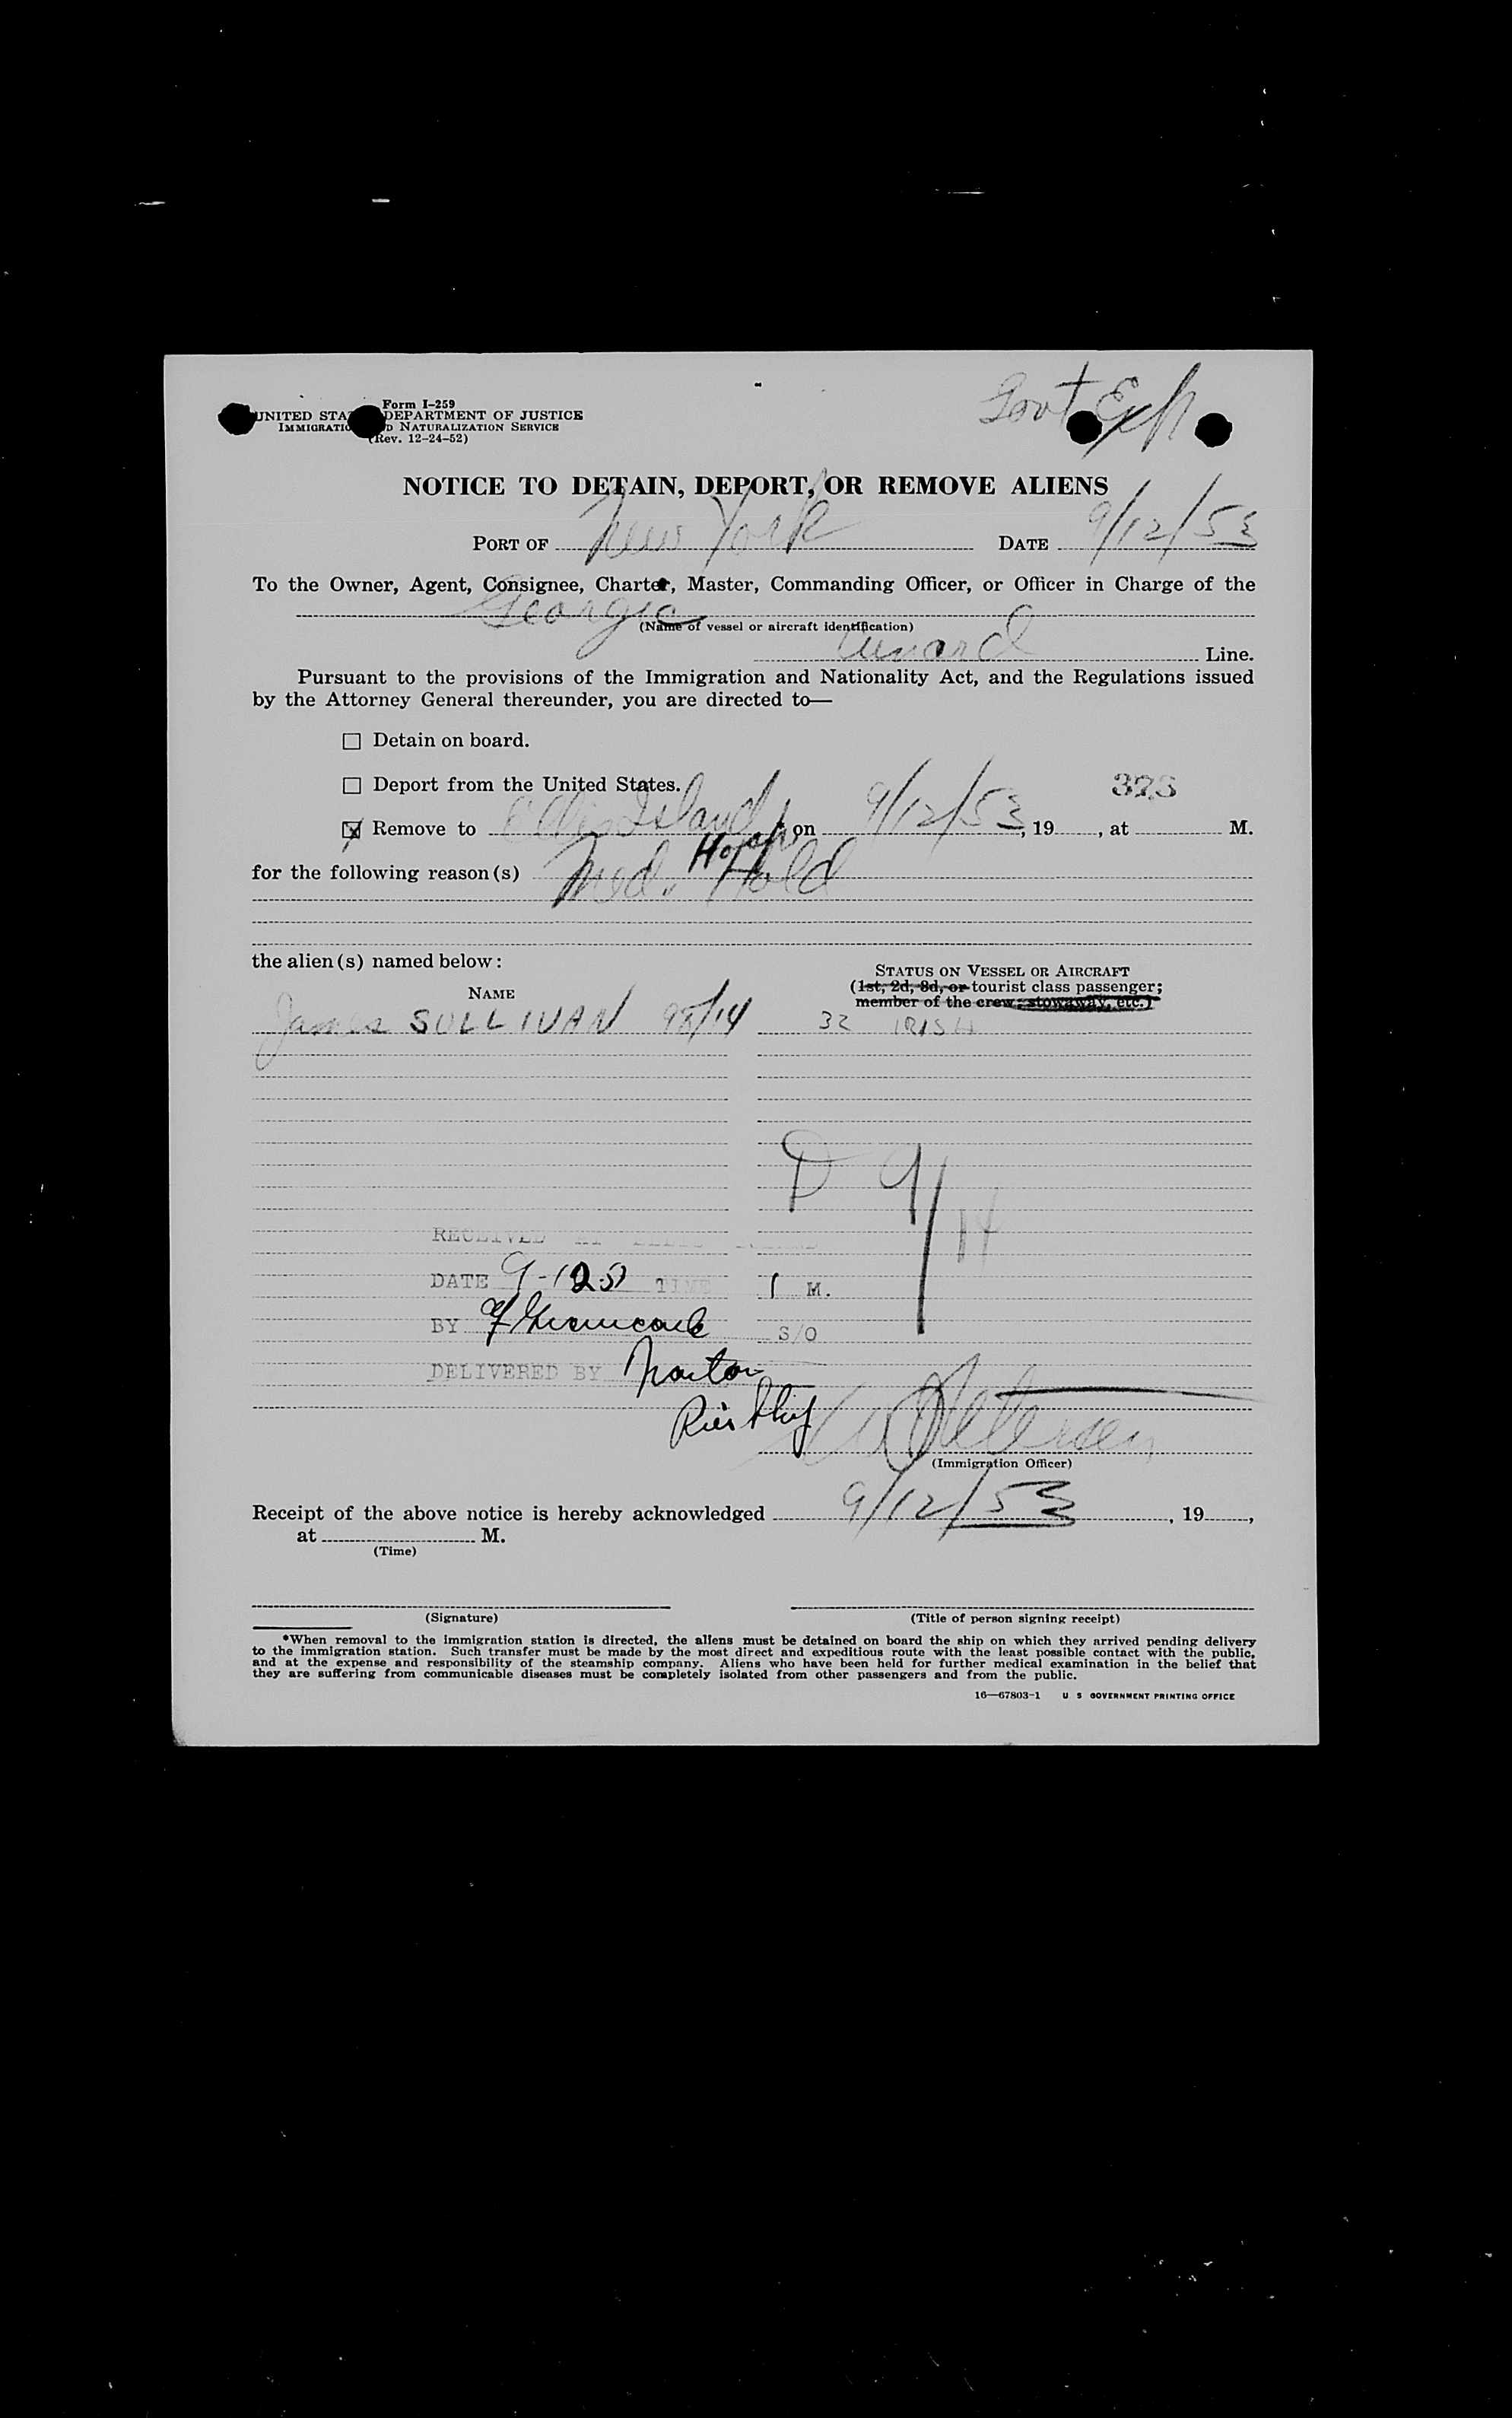 Govt Exp
Form I-259
UNITED STA DEPARTMENT OF JUSTICE
IMMIGRATIO D NATURALIZATION SERVICE
(Rev. 12-24-52)
NOTICE TO DETAIN, DEPORT, OR REMOVE ALIENS
PORT OF New York DATE 9/12/53
To the Owner, Agent, Consignee, Charter, Master, Commanding Officer, or Officer in Charge of the
Georgic
(Name of vessel or aircraft identification)
Cunard Line.
Pursuant to the provisions of the Immigration and Nationality Act, and the Regulations issued
by the Attorney General thereunder, you are directed to—
Detain on board.
Deport from the United States. 323
Remove to Ellis Island Hosp *on 9/12/53, 19, at M.
for the following reason(s) Med. Hold
the alien(s) named below:
STATUS ON VESSEL OR AIRCRAFT
(1st, 2d, 3d, or tourist class passenger;
member of the crew; stowaway, etc.)
NAME
James SULLIVAN 98/14 32 IRISH
D 9/14
RECEIVED AT ELLIS ISLAND
DATE 9-12-53 TIME 1 M.
BY S/O
DELIVERED BY Norton
Petersen
(Immigration Officer)
Receipt of the above notice is hereby acknowledged 9/12/53, 19,
at M.
(Time)
(Signature) (Title of person signing receipt)
*When removal to the immigration station is directed, the aliens must be detained on board the ship on which they arrived pending delivery
to the immigration station. Such transfer must be made by the most direct and expeditious route with the least possible contact with the public,
and at the expense and responsibility of the steamship company. Aliens who have been held for further medical examination in the belief that
they are suffering from communicable diseases must be completely isolated from other passengers and from the public.
16—67803-1 U S GOVERNMENT PRINTING OFFICE